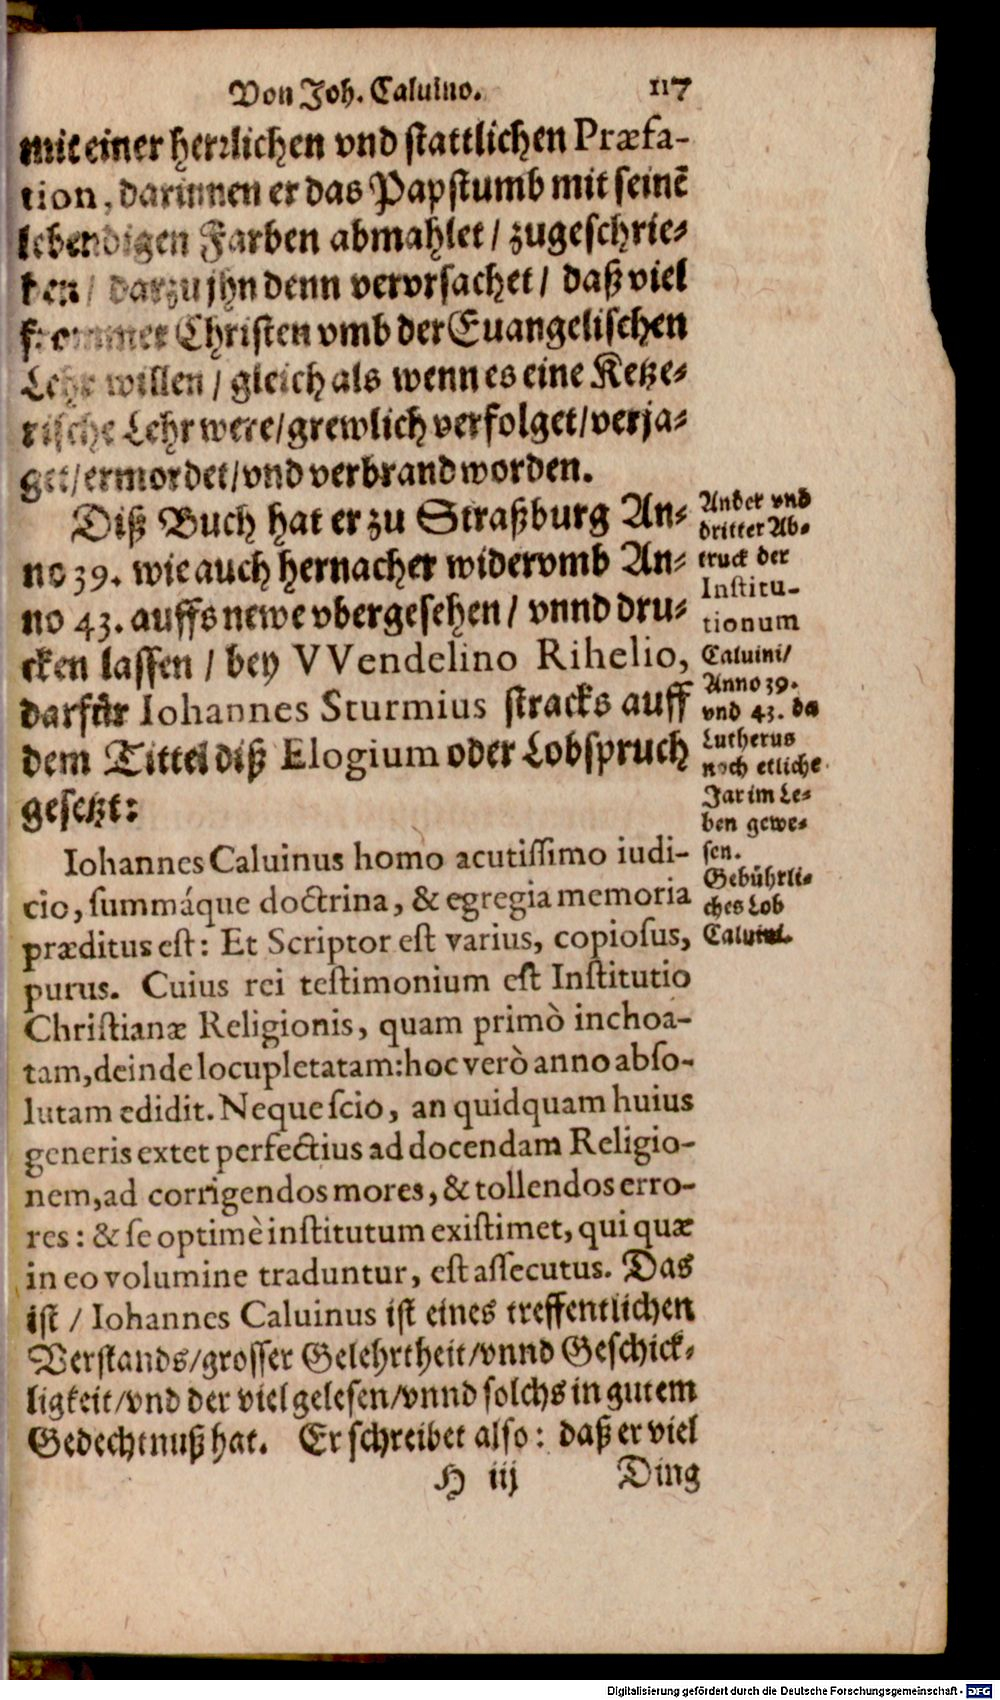 Von Joh. Caluino. 117
mit einer herꝛlichen vnd stattlichen Præfa-
tion, darinnen er das Papstumb mit seinē
lebendigen Farben abmahlet / zugeschrie-
ben / darzu jhn denn vervrsachet / daß viel
frommer Christen vmb der Euangelischen
Lehr willen / gleich als wenn es eine Ketze-
rische Lehr were / grewlich verfolget / verja-
get / ermordet / vnd verbrand worden.
Diß Buch hat er zu Straßburg An-
no 39. wie auch hernacher widerumb An-
no 43. auffs newe vbergesehen / vnnd dru-
cken lassen / bey VVendelino Rihelio,
darfür Iohannes Sturmius stracks auff
dem Tittel diß Elogium oder Lobspruch
gesetzt:
Iohannes Caluinus homo acutissimo iudi-
cio, summáque doctrina, & egregia memoria
præditus est: Et Scriptor est varius, copiosus,
purus. Cuius rei testimonium est Institutio
Christianæ Religionis, quam primò inchoa-
tam, deinde locupletatam: hoc verò anno abso-
lutam edidit. Neque scio, an quidquam huius
generis extet perfectius ad docendam Religio-
nem, ad corrigendos mores, & tollendos erro-
res: & se optimè institutum existimet, qui quæ
in eo volumine traduntur, est assecutus. Das
ist / Iohannes Caluinus ist eines treffentlichen
Verstands / grosser Gelehrtheit / vnnd Geschick-
ligkeit / vnd der viel gelesen / vnnd solchs in gutem
Gedechtnuß hat. Er schreibet also: daß er viel
H iij Ding
Ander vnd
dritter Ab-
truck der
Institu-
tionum
Caluini /
Anno 39.
vnd 43. da
Lutherus
noch etliche
Jar im Le-
ben gewe-
sen.
Gebührli-
ches Lob
Caluini.
Digitalisierung gefördert durch die Deutsche Forschungsgemeinschaft - DFG